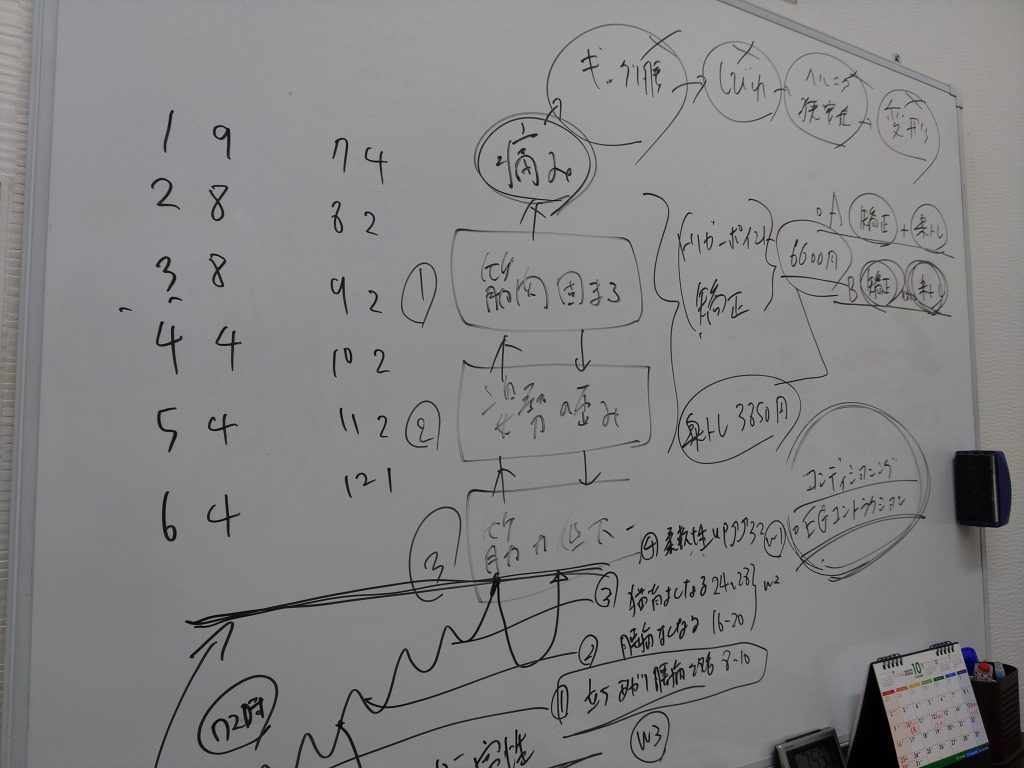 1 9
2 8
3 8
4 4
5 4
6 4
7 4
8 2
9 2
10 2
11 2
12 1
ギックリ腰
しびれ
ヘルニア
狭窄症
変形
痛み
① 筋肉固まる
② 姿勢の歪み
③ 筋力低下
トリガーポイント
矯正
6600円
A 矯正 + 楽トレ
B 矯正 楽トレ
楽トレ 3850円
コンディショニング
EGコントラクション
④ 柔軟性UP 32 W1
③ 猫背よくなる 24-28
W2
② 腰痛よくなる 16-20
① 立ち上がり腰痛 8-10
W3
72時
10